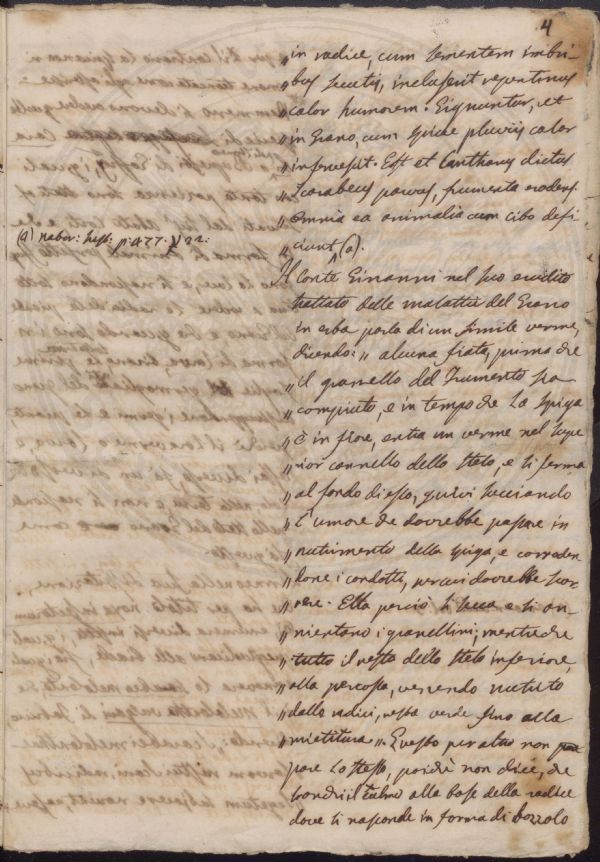 4
„ in radice, cum sementem imbri-
„ bus secutis, incluserit repentinus
„ calor humorem. Gignuntur, et
„ in Grano, cum spicae pluviis calor
„ infervescit. Est et Cantharus dictus
„ Scarabeus parvus, frumenta erodens.
„ Omnia ea animalia cum cibo defi-
„ ciunt (a).
(a) nabor: hist: p: 477. 22:
Il Conte Ginanni nel suo erudito
trattato delle malattie del Grano
in erba parla di un simile verme,
dicendo: „ alcuna fiata, prima che
„ il granello del Frumento sia
„ compiuto, e in tempo che la spiga
„ è in fiore, entra un verme nel supe-
„ rior cannello dello stelo, e si ferma
„ al fondo di esso, quivi succiando
„ l'umore che dovrebbe passare in
„ nutrimento della spiga, e corroden-
„ done i condotti, per cui dovrebbe scor-
„ rere. Ella perciò si secca e si an-
„ nientano i granellini; mentre che
„ tutto il resto dello stelo inferiore,
„ alla percossa, venendo nutrito
„ dalle radici, resta verde fino alla
„ mietitura „. Questo per altro non
pare lo stesso, poichè non dice, che
tronchi il culmo alla base della radice
dove si nasconde in forma di bozzolo